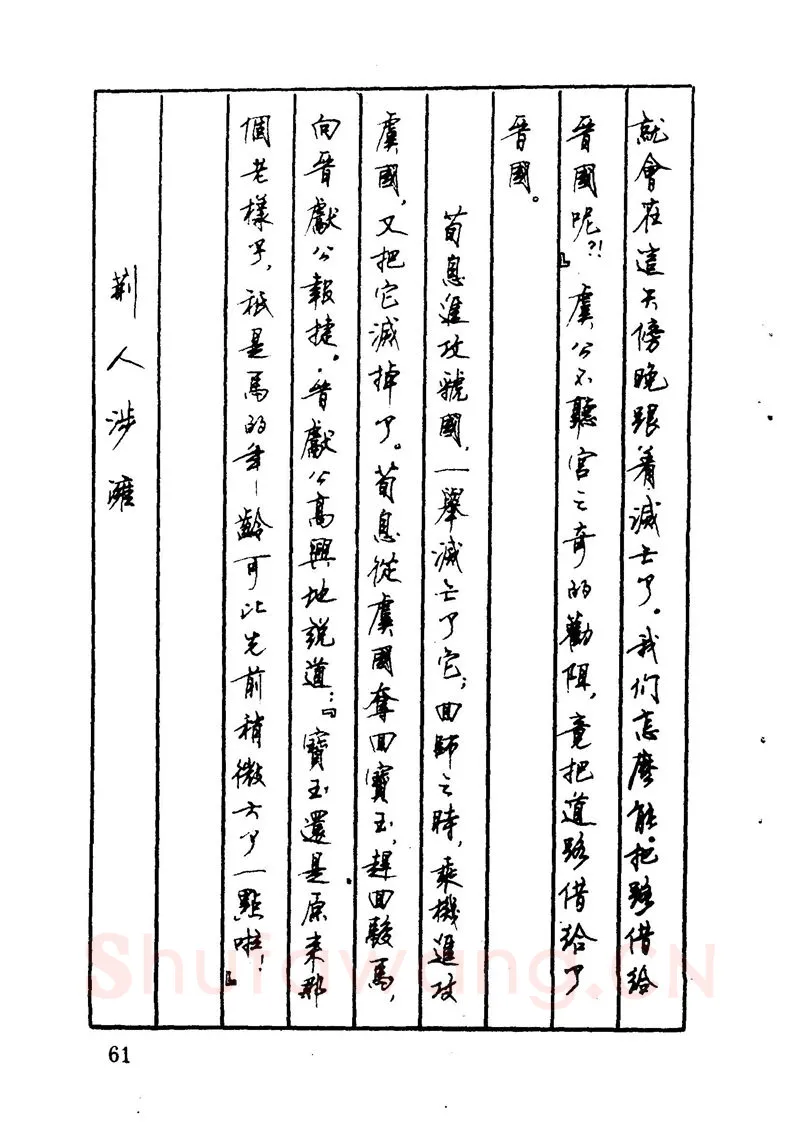 就會在這天傍晚跟着滅亡了。我们怎麽能把路借給
晉國呢?!』虞公不聽宫之奇的勸阻，竟把道路借給了
晉國。
荀息進攻虢國，一舉滅亡了它；回師之時，乘機進攻
虞國，又把它滅掉了。荀息從虞國奪回寶玉，趕回駿馬，
向晉獻公報捷。晉獻公高興地説道：『寶玉還是原来那
個老樣子，衹是馬的年齡可比先前稍微大了一點啦！』
荊人涉澭
61
Shufawang.CN